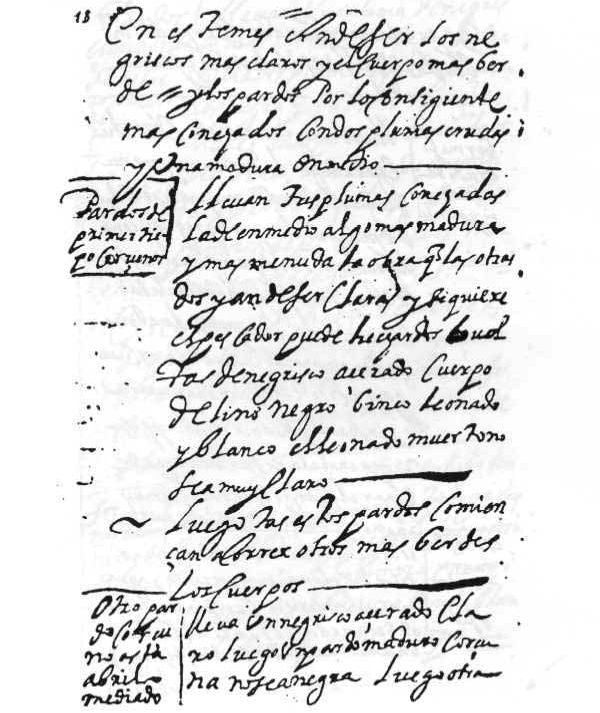 18
En es te mes an de ser los ne
griscos mas claros y el cuerpo mas ber
de = y los pardos Por lo consigiente
mas Conejados Con dos plumas crudas
y una madura en medio
Pardos de
primer tie
po Corçunos
lleuan tres plumas Conejadas
la de en medio algo mas madura
y mas menuda la obra q las otras
dos y an de ser Claras y si quiere
el pescador puede hechardos buel
tas de negrisco acerado Cuerpo
de lino negro binco leonado
y blanco el leonado muerto no
sea muy Claro
Luego tas es tos pardos Comien
çan a otros mas berdes
Los Cuerpos
Otro par
do Corcu
no asta
abril
mediado
lleva un negrisco acerado Cla
ro luego un pardo maduro Corcu
na no sea negra luego otra